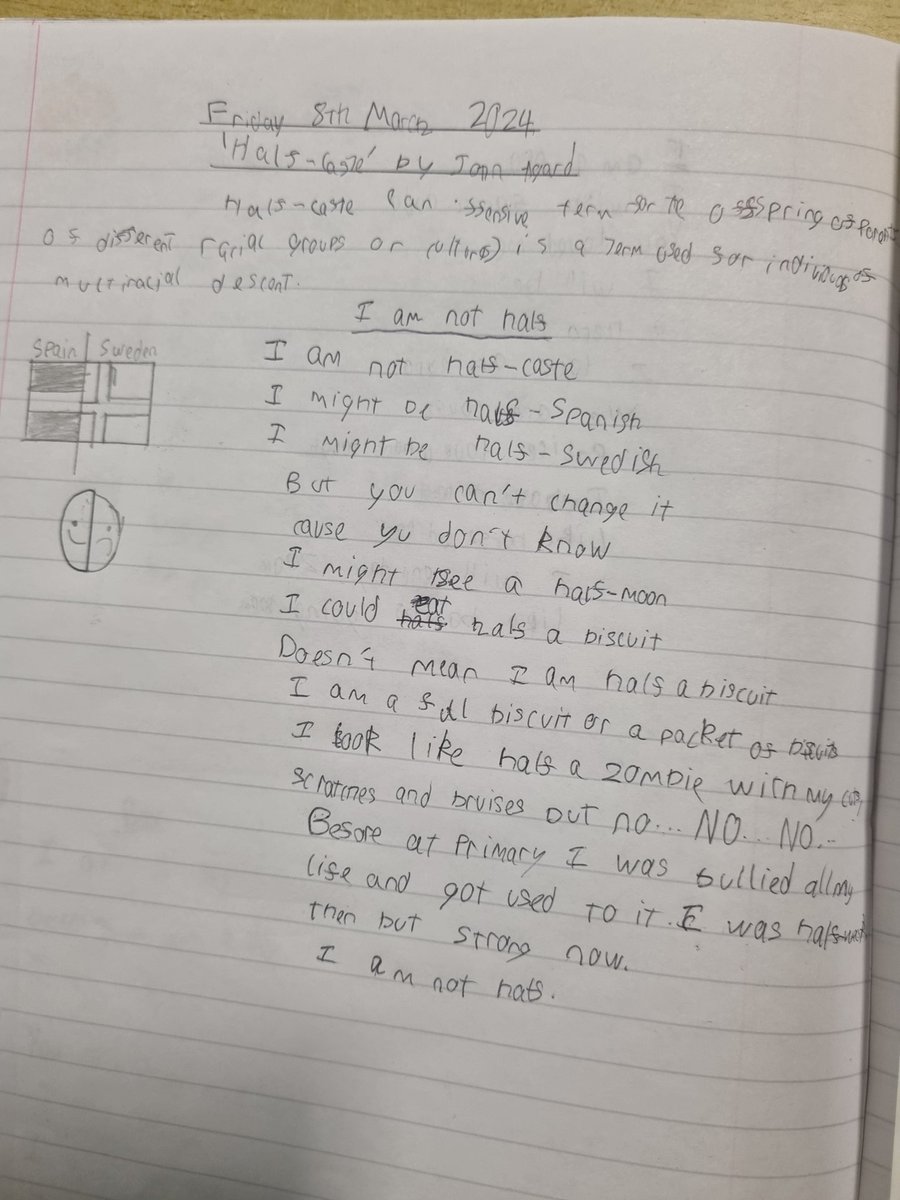 Friday 8th March 2024
'Half-caste' by John Agard
Half-caste (an offensive term for the offspring of parents
of different racial groups or cultures) is a term used for individuals of
multiracial descent.
I am not half
Spain Sweden
I am not half-caste
I might be half-Spanish
I might be half-Swedish
But you can't change it
cause you don't know
I might see a half-moon
I could eat half a biscuit
Doesn't mean I am half a biscuit
I am a full biscuit or a packet of biscuits
I look like half a zombie with my
scratches and bruises but no... NO... NO...
Before at Primary I was bullied all my
life and got used to it. I was half-
then but strong now.
I am not half.